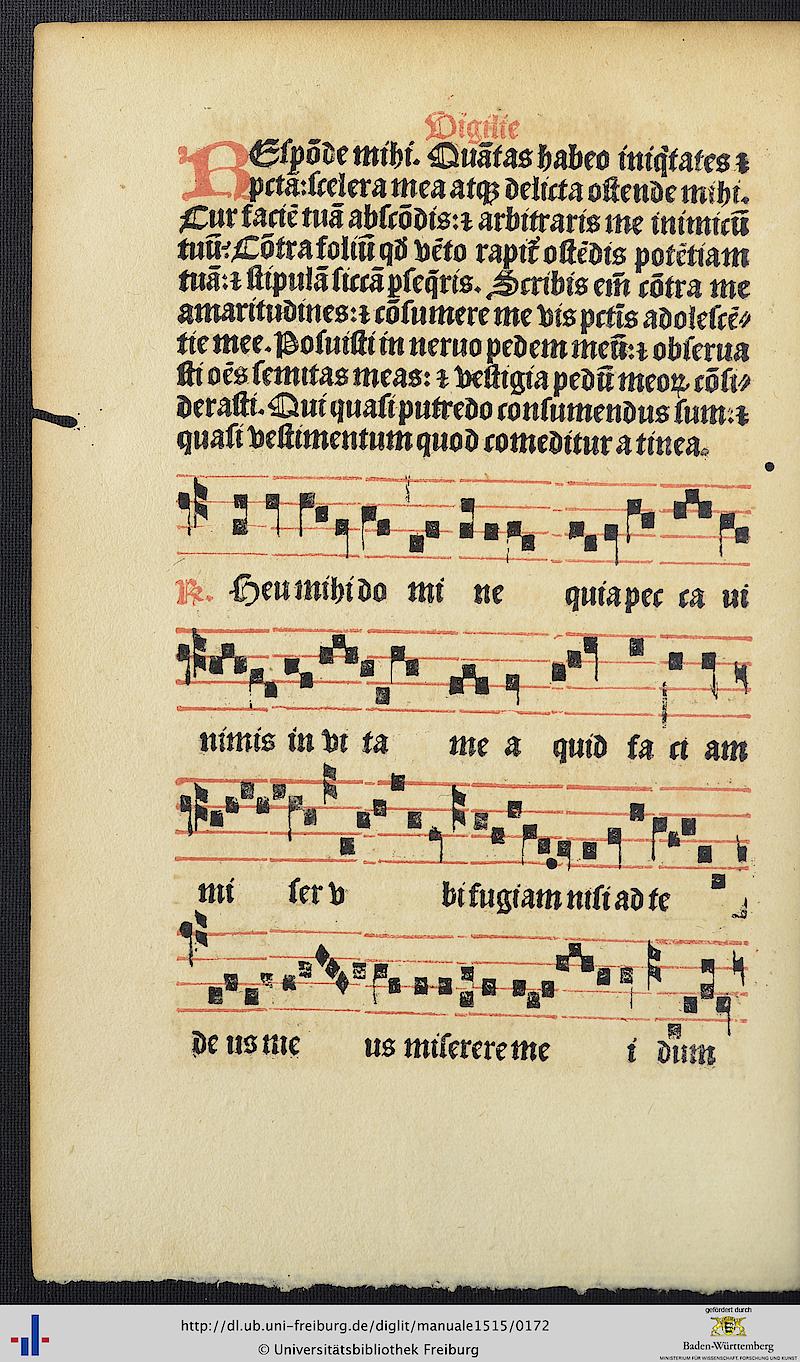 Vigilie
REspōde mihi. Quātas habeo iniq̄tates ⁊
pctā: scelera mea atqꝫ delicta ostende mihi.
Cur faciē tuā abscōdis: ⁊ arbitraris me inimicū
tuū? Cōtra foliū qđ vēto rapit̄ ostēdis potētiam
tuā: ⁊ stipulā siccā ꝑseq̄ris. Scribis em̄ cōtra me
amaritudines: ⁊ cōsumere me vis pctīs adolescē⸗
tie mee. Posuisti in neruo pedem meū: ⁊ obserua
sti oēs semitas meas: ⁊ vestigia pedū meoꝝ cōsi⸗
derasti. Qui quasi putredo consumendus sum: ⁊
quasi vestimentum quod comeditur a tinea.
℟. Heu mihi do mi ne quia pec ca ui
nimis in vi ta me a quid fa ci am
mi ser v bi fugiam nisi ad te
de us me us miserere me i dum
http://dl.ub.uni-freiburg.de/diglit/manuale1515/0172
© Universitätsbibliothek Freiburg
gefördert durch
Baden-Württemberg
MINISTERIUM FÜR WISSENSCHAFT, FORSCHUNG UND KUNST